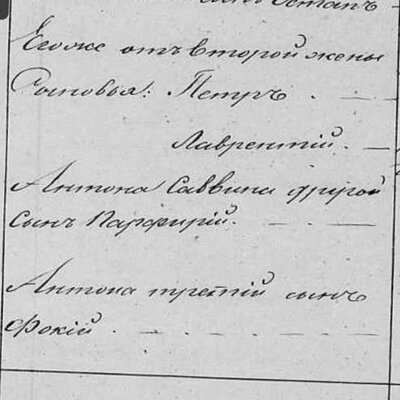 сынъ Остапъ
Егоже отъ второй жены
Сыновья: Петръ
Лаврентій.
Антона Саввина другой
сынъ Парфирій.
Антона третій сынъ
Фокій.